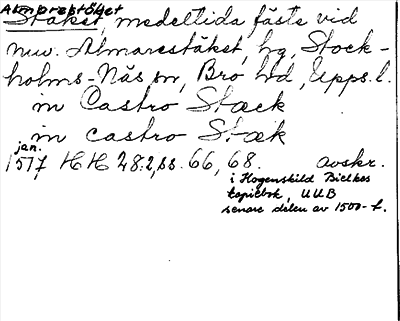 Almarestäket
Stäket, medeltida fäste vid
nuv. Almarestäket, hg, Stock-
holms-Näs sn, Bro hd, Upps.l.
in Castro Stæck
in castro Stæk
jan.
1517 HH 28:2, ss. 66, 68. avskr.
i Hogenskild Bielkes
kopiebok, UUB
senare delen av 1500-t.